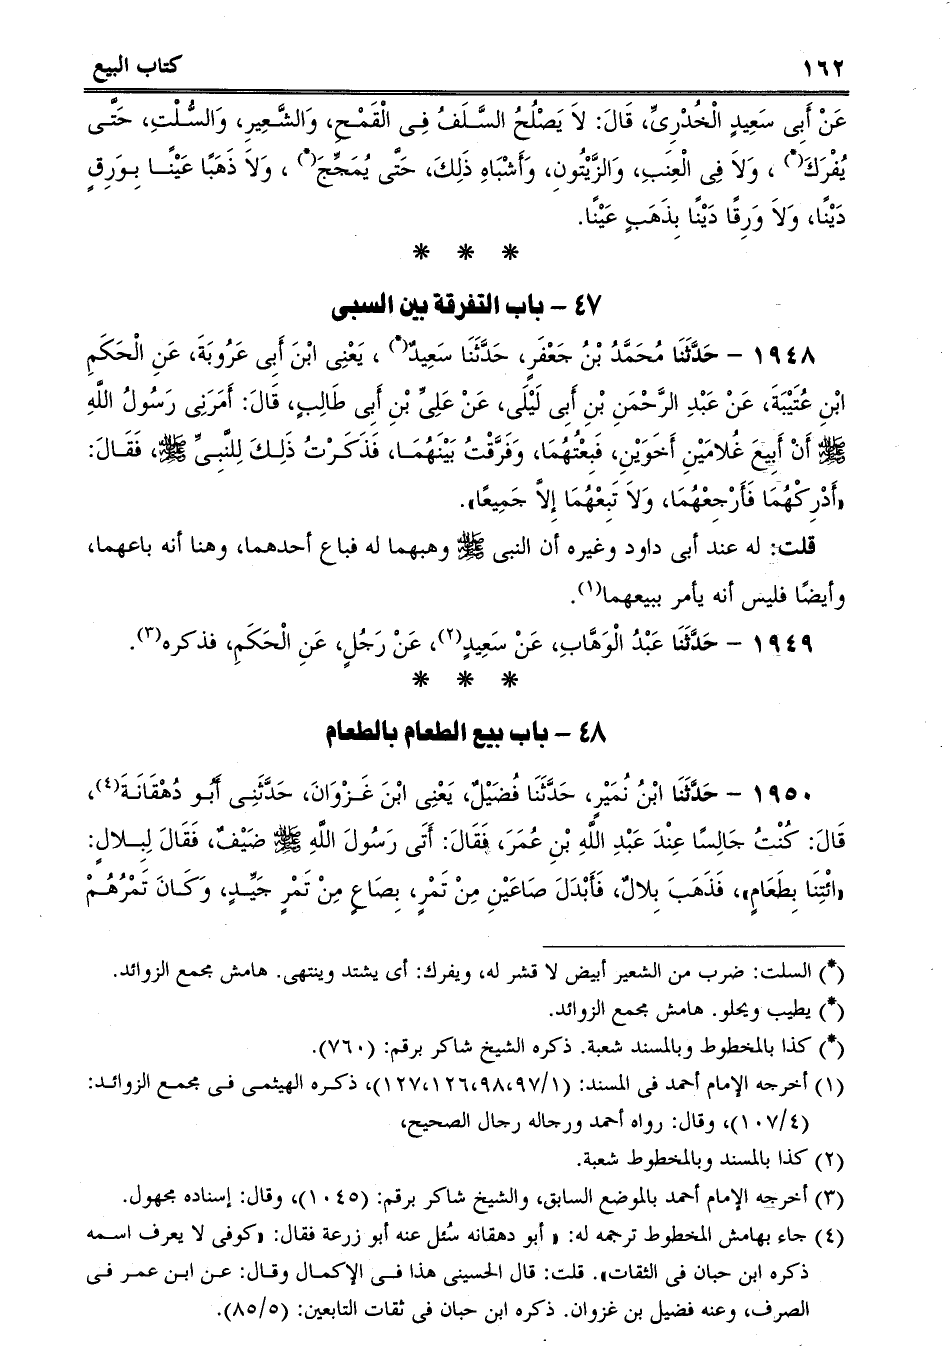 ١٦٢ كتاب البيع
عَنْ أَبِى سَعِيدٍ الْخُدْرِىِّ، قَالَ: لاَ يَصْلُحُ السَّلَفُ فِى الْقَمْحِ، وَالشَّعِيرِ، وَالسُّلْتِ، حَتَّى
يُفْرَكَ(*) ، وَلاَ فِى الْعِنَبِ، وَالزَّيْتُونِ، وَأَشْبَاهِ ذَلِكَ، حَتَّى يُمَجِّجَ(*) ، وَلاَ ذَهَبًا عَيْنًا بِوَرِقٍ
دَيْنًا، وَلاَ وَرِقًا دَيْنًا بِذَهَبٍ عَيْنًا.
* * *
٤٧ – باب التفرقة بين السبى
١٩٤٨ – حَدَّثَنَا مُحَمَّدُ بْنُ جَعْفَرٍ، حَدَّثَنَا سَعِيدٌ(*) ، يَعْنِى ابْنَ أَبِى عَرُوبَةَ، عَنِ الْحَكَمِ
ابْنِ عُتَيْبَةَ، عَنْ عَبْدِ الرَّحْمَنِ بْنِ أَبِى لَيْلَى، عَنْ عَلِىِّ بْنِ أَبِى طَالِبٍ، قَالَ: أَمَرَنِى رَسُولُ اللَّهِ
ﷺ أَنْ أَبِيعَ غُلاَمَيْنِ أَخَوَيْنِ، فَبِعْتُهُمَا، وَفَرَّقْتُ بَيْنَهُمَا، فَذَكَرْتُ ذَلِكَ لِلنَّبِىِّ ﷺ، فَقَالَ:
«أَدْرِكْهُمَا فَأَرْجِعْهُمَا، وَلاَ تَبِعْهُمَا إِلاَّ جَمِيعًا».
قلت: له عند أبى داود وغيره أن النبى ﷺ وهبهما له فباع أحدهما، وهنا أنه باعهما،
وأيضًا فليس أنه يأمر ببيعهما(١).
١٩٤٩ – حَدَّثَنَا عَبْدُ الْوَهَّابِ، عَنْ سَعِيدٍ(٢)، عَنْ رَجُلٍ، عَنِ الْحَكَمِ، فذكره(٣).
* * *
٤٨ – باب بيع الطعام بالطعام
١٩٥٠ – حَدَّثَنَا ابْنُ نُمَيْرٍ، حَدَّثَنَا فُضَيْلٌ، يَعْنِى ابْنَ غَزْوَانَ، حَدَّثَنِى أَبُو دُهْقَانَةَ(٤)،
قَالَ: كُنْتُ جَالِسًا عِنْدَ عَبْدِ اللَّهِ بْنِ عُمَرَ، فَقَالَ: أَتَى رَسُولَ اللَّهِ ﷺ ضَيْفٌ، فَقَالَ لِبِلالٍ:
«ائْتِنَا بِطَعَامٍ»، فَذَهَبَ بِلالٌ، فَأَبْدَلَ صَاعَيْنِ مِنْ تَمْرٍ، بِصَاعٍ مِنْ تَمْرٍ جَيِّدٍ، وَكَانَ تَمْرُهُمْ
(*) السلت: ضرب من الشعير أبيض لا قشر له، ويفرك: أى يشتد وينتهى. هامش مجمع الزوائد.
(*) يطيب ويحلو. هامش مجمع الزوائد.
(*) كذا بالمخطوط وبالمسند شعبة. ذكره الشيخ شاكر برقم: (٧٦٠).
(١) أخرجه الإمام أحمد فى المسند: (١/ ٩٧، ٩٨، ١٢٦، ١٢٧)، ذكره الهيثمى فى مجمع الزوائد:
(٤/ ١٠٧)، وقال: رواه أحمد ورجاله رجال الصحيح،
(٢) كذا بالمسند وبالمخطوط شعبة.
(٣) أخرجه الإمام أحمد بالموضع السابق، والشيخ شاكر برقم: (١٠٤٥)، وقال: إسناده مجهول.
(٤) جاء بهامش المخطوط ترجمه له: « أبو دهقانه سُئل عنه أبو زرعة فقال: «كوفى لا يعرف اسمه
ذكره ابن حبان فى الثقات». قلت: قال الحسينى هذا فى الإكمال وقال: عن ابن عمر فى
الصرف، وعنه فضيل بن غزوان. ذكره ابن حبان فى ثقات التابعين: (٥/ ٨٥).